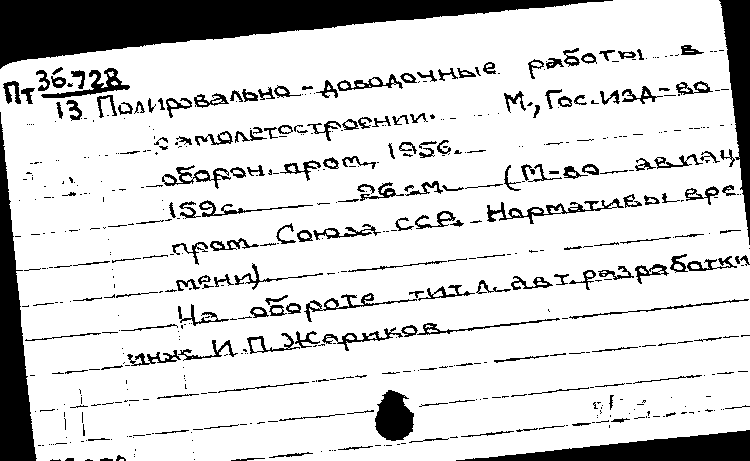 Пт 36.728
13 Полировально-доводочные работы в
самолетостроении. М., Гос.изд-во
оборон. пром., 1956.
159с. 26 см. (М-во авиац.
пром. Союза ССР. Нормативы вре-
мени).
На обороте тит.л. авт.разработки
инж. И.П.Жариков.